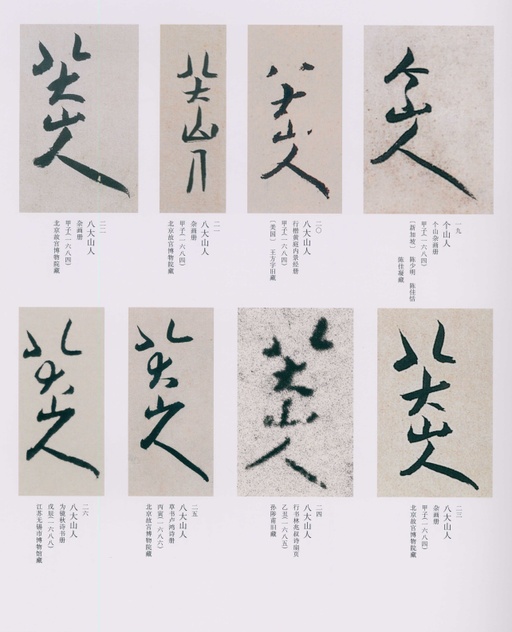 个山人
一九
个山人
个山杂画册
甲子（一六八四）
（新加坡） 陈少明 陈佳恬
陈佳凝藏
八大山人
二〇
八大山人
行楷黄庭内景经册
甲子（一六八四）
（美国） 王方宇旧藏
八大山人
二一
八大山人
杂画册
甲子（一六八四）
北京故宫博物院藏
八大山人
二二
八大山人
杂画册
甲子（一六八四）
北京故宫博物院藏
八大山人
二三
八大山人
杂画册
甲子（一六八四）
北京故宫博物院藏
八大山人
二四
八大山人
行书林兆叔诗扇页
乙丑（一六八五）
八大山人
二五
八大山人
草书卢鸿诗册
丙寅（一六八六）
北京故宫博物院藏
八大山人
二六
八大山人
为镜秋诗书册
戊辰（一六八八）
江苏无锡市博物馆藏